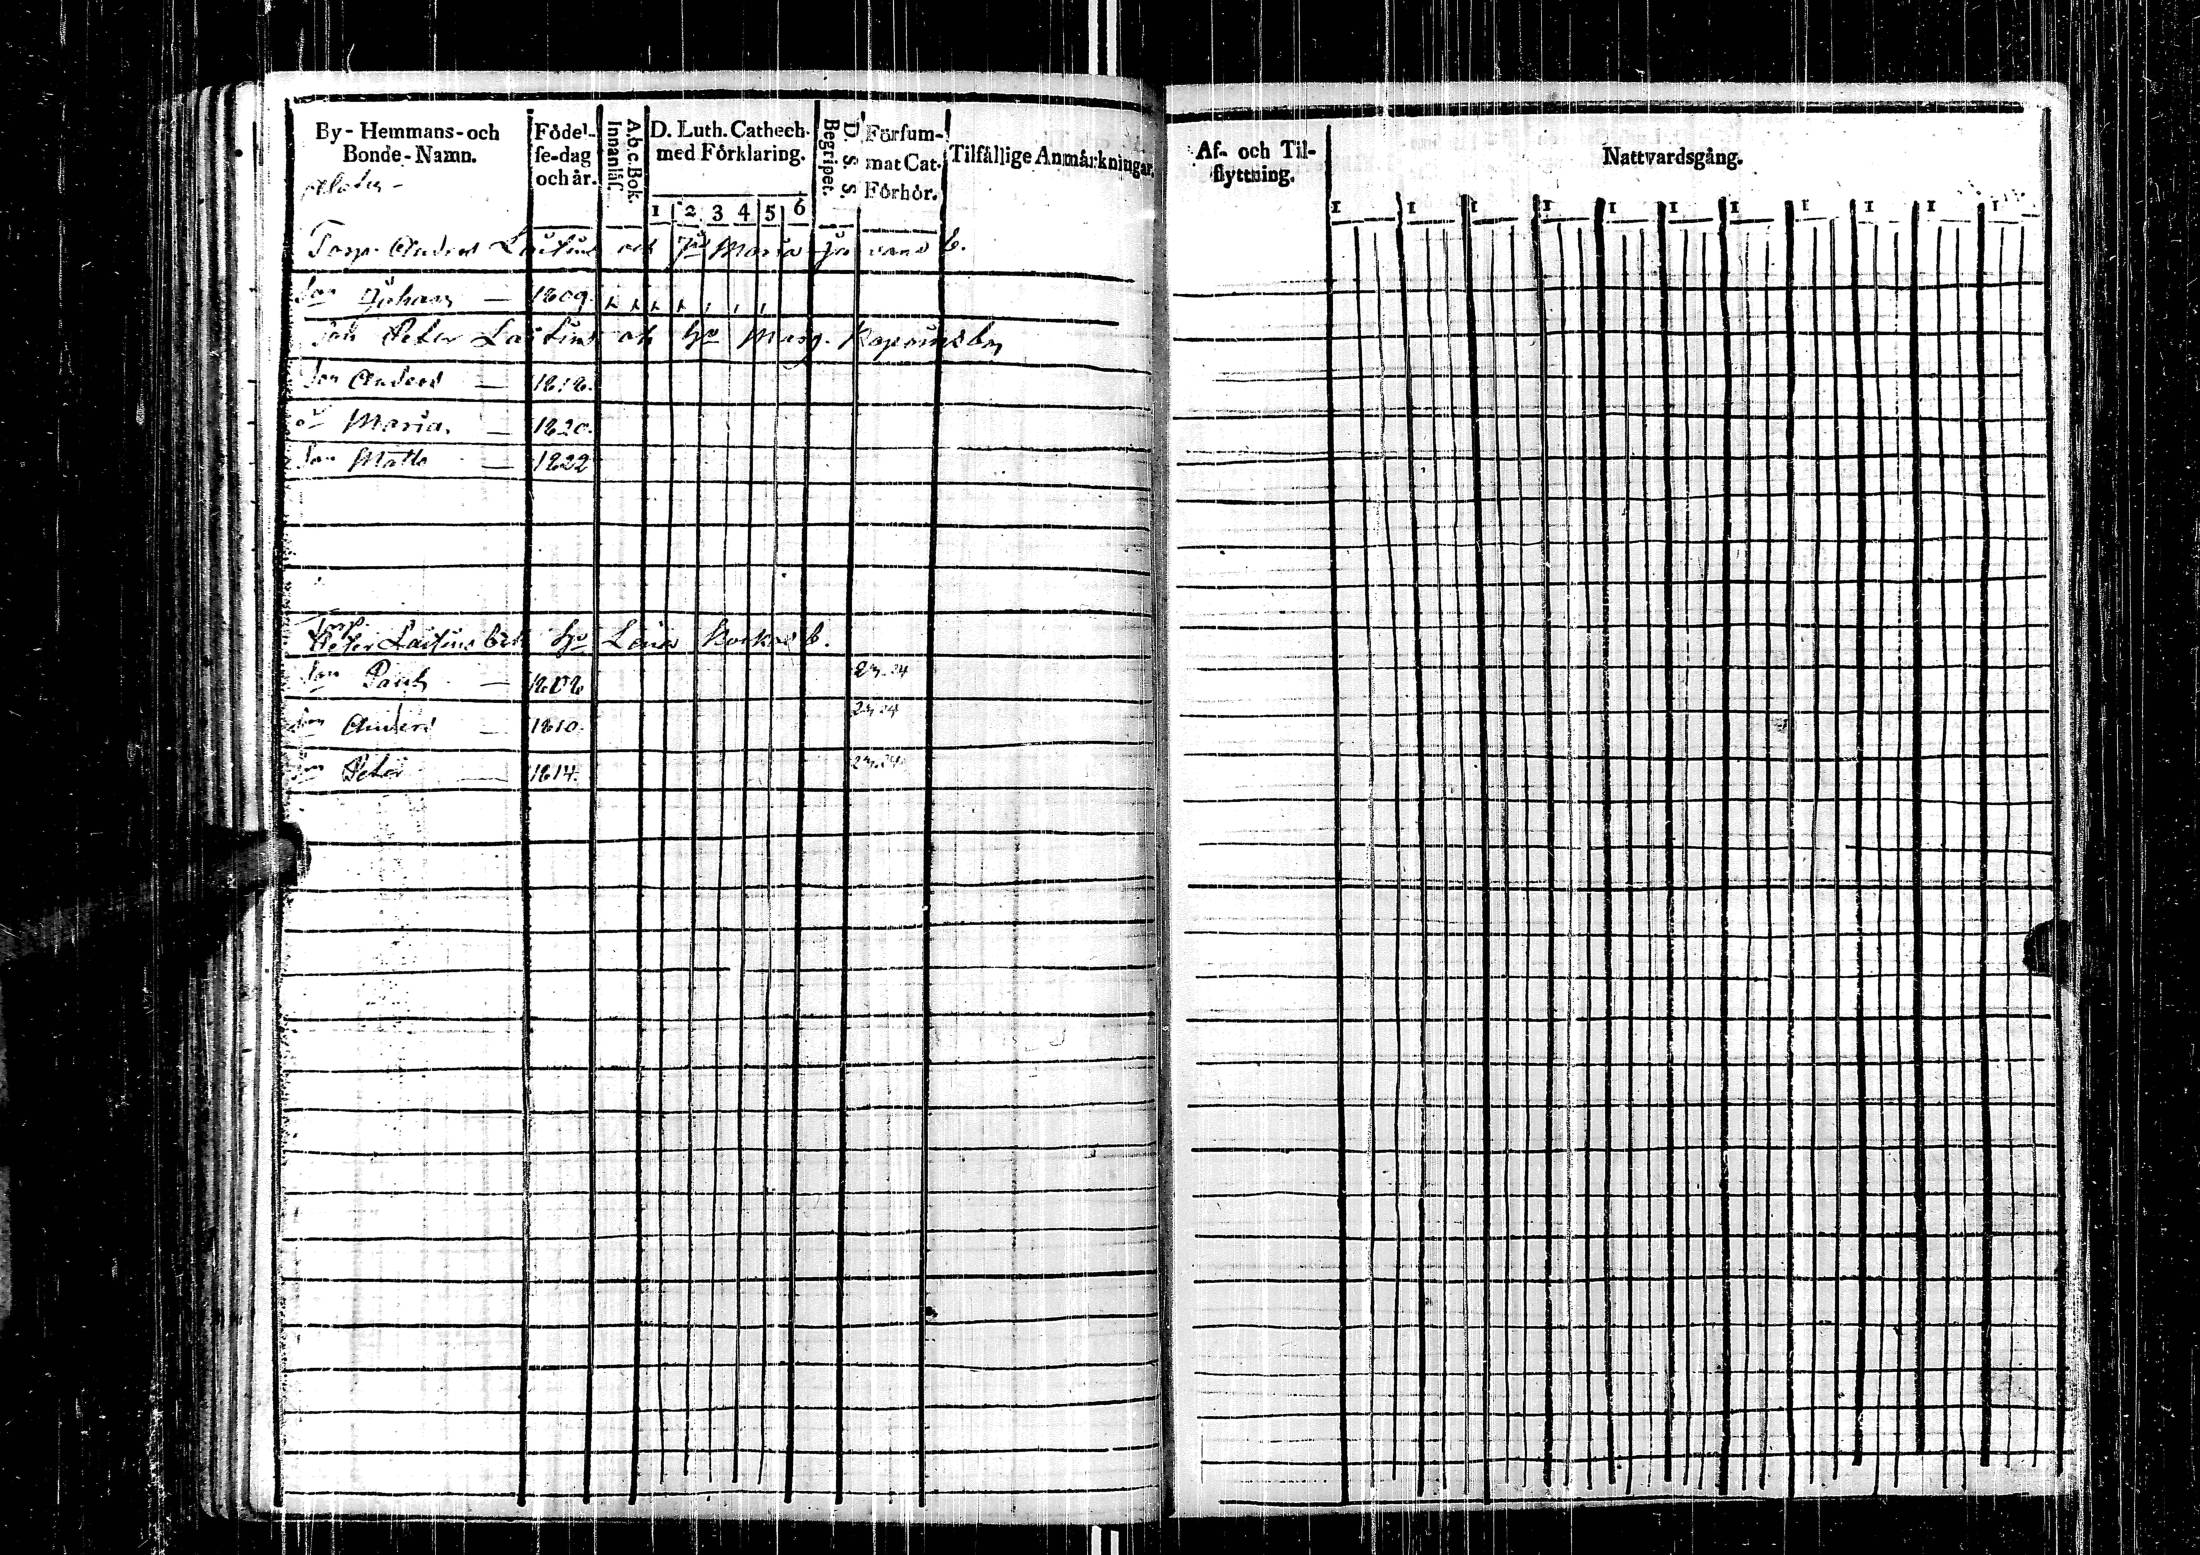 By-Hemmans-och
Bonde-Namn.
Födel-
se-dag
och år.
A.b.c.Bok.
Innanläs.
D. Luth. Cathech.
med Förklaring.
1 2 3 4 5 6
D. S. S.
Begripet.
Försum-
mat Cat.
Förhör.
Tilfällige Anmärkningar.
Torp. Anders Laitin och Maria
Son Johan — 1809.
Peter Laitin och Hu Marg.
Son Anders — 1818.
Dr Maria — 1820.
Son Matts — 1822
Torp.
Peter Laitin Hu Lena
Son Paul — 1808 23.24
Son Anders — 1810. 23.24
Son Peter — 1814. 23.24
Af- och Til-
flyttning.
Nattvardsgång.
1 1 1 1 1 1 1 1 1 1 1